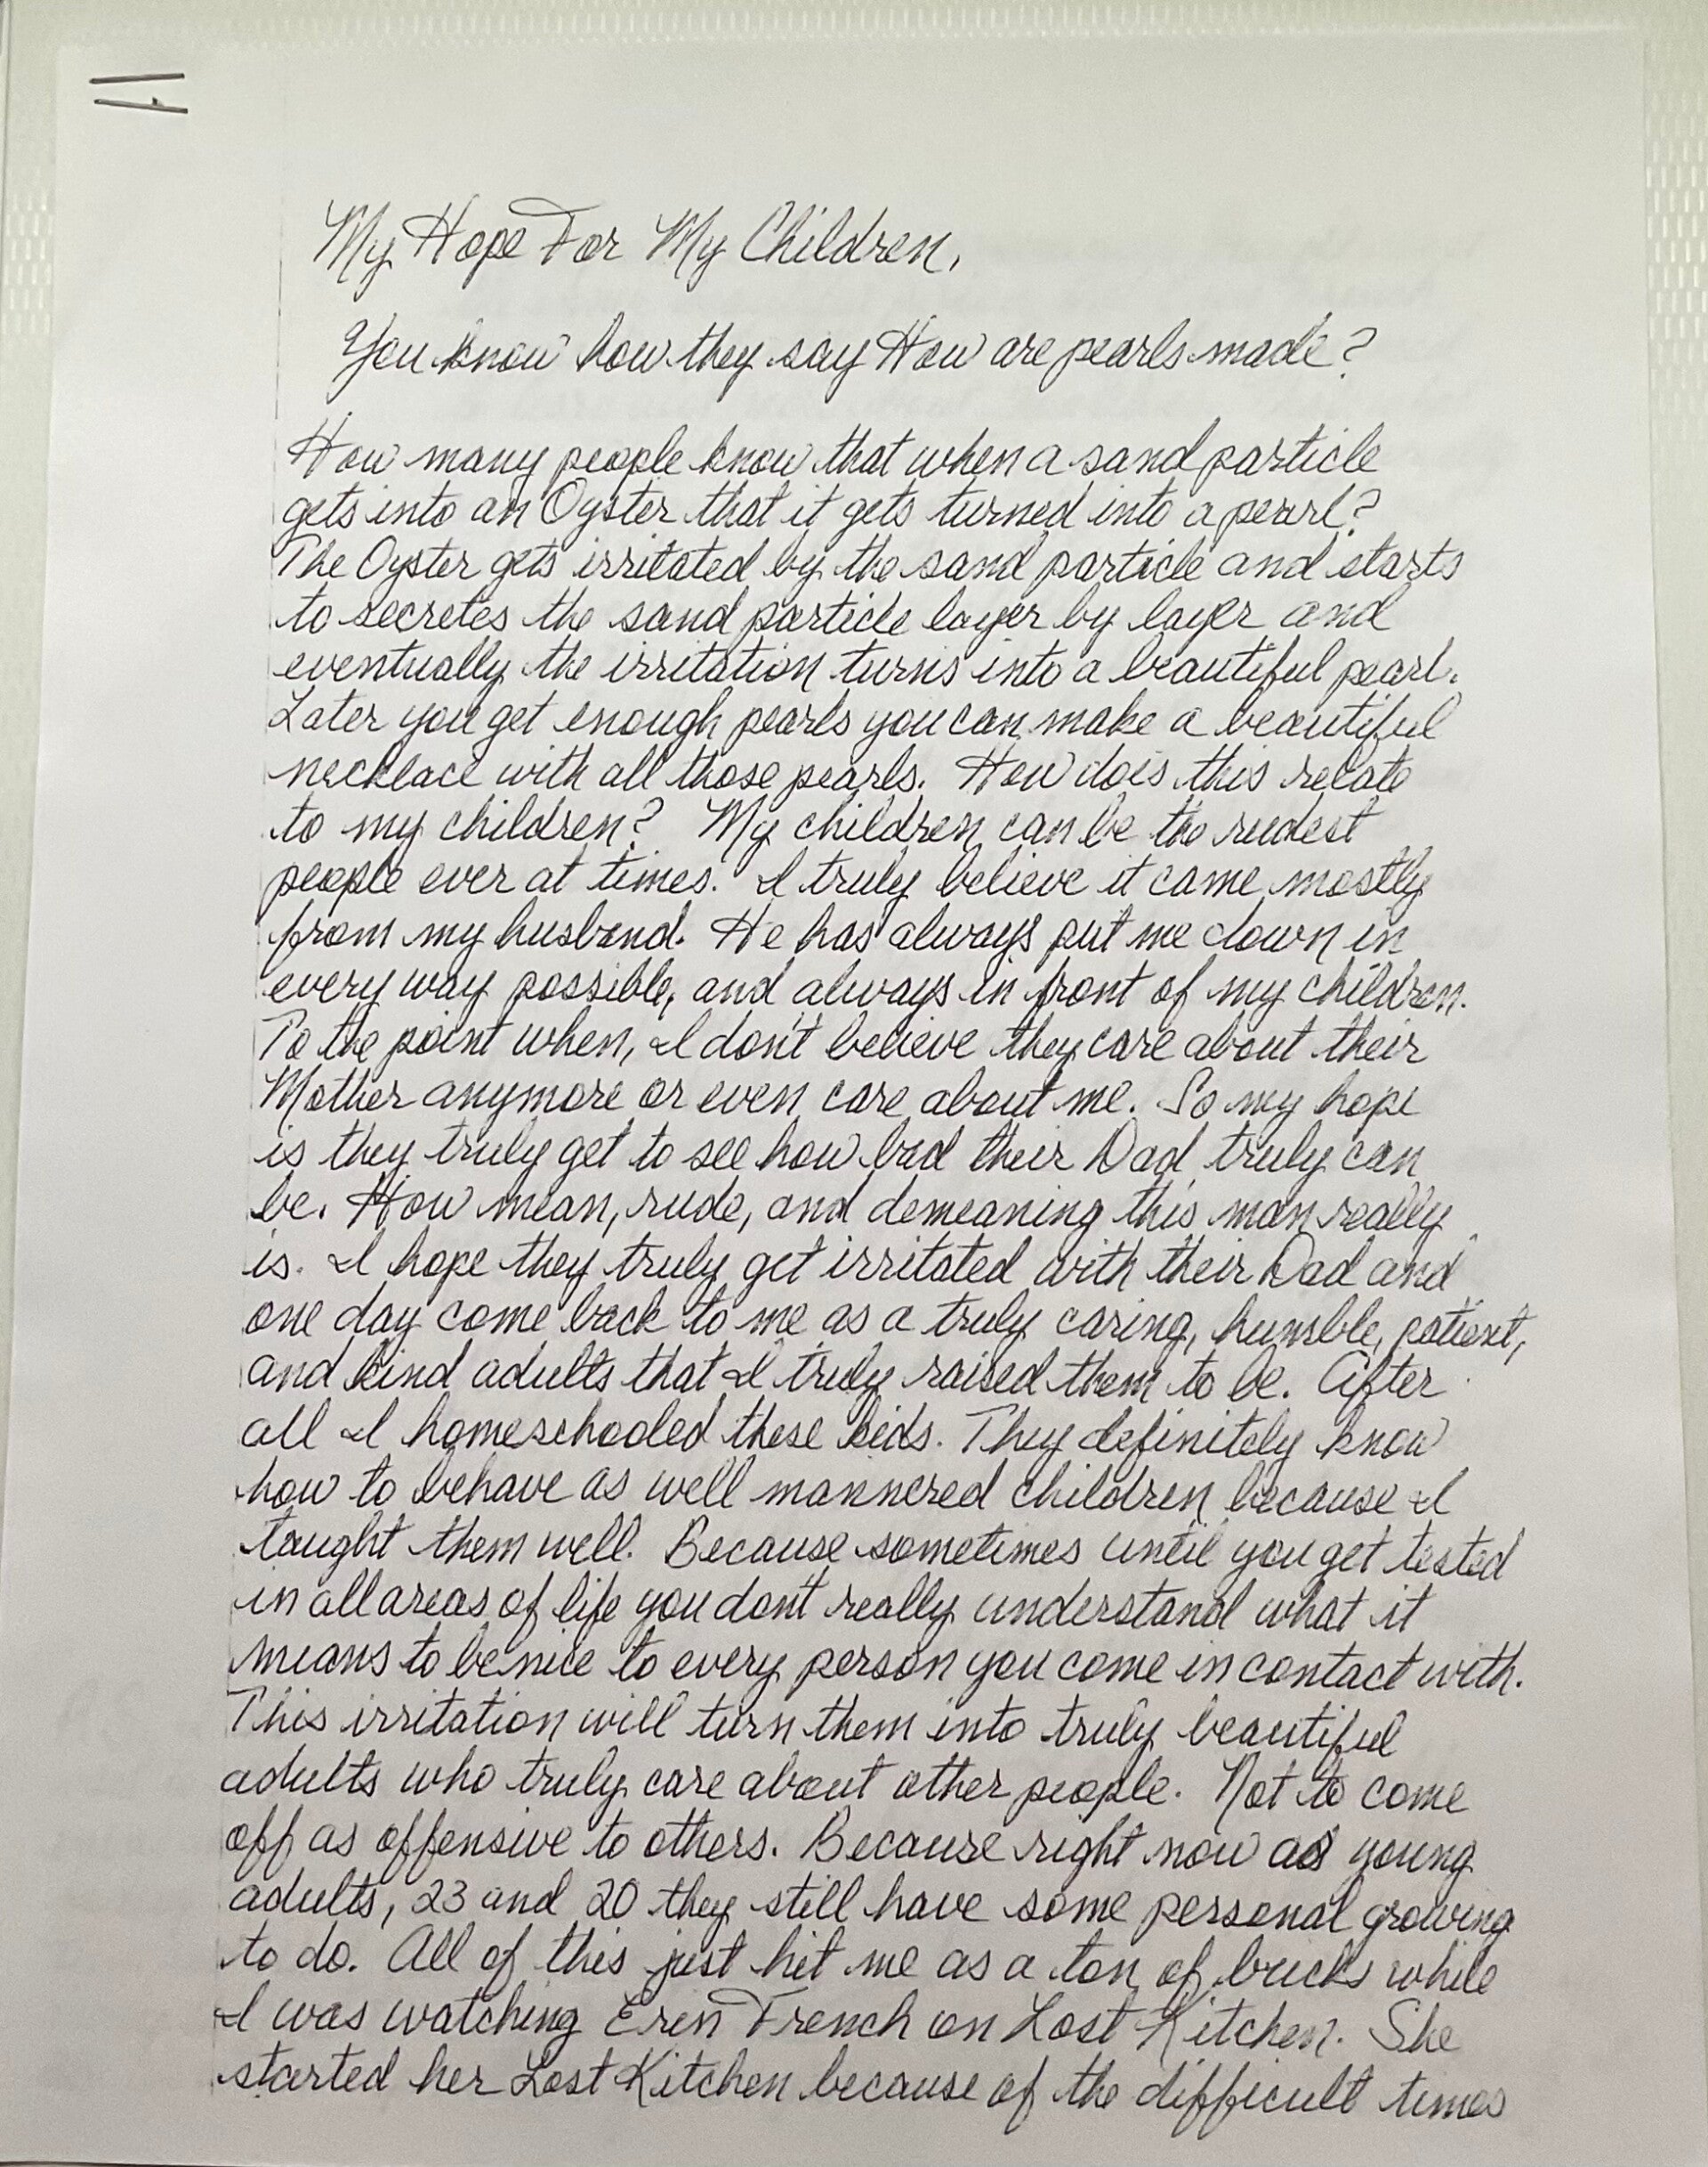 My Hope For My Children,
You know how they say How are pearls made?
How many people know that when a sand particle
gets into an Oyster that it gets turned into a pearl?
The Oyster gets irritated by the sand particle and starts
to secretes the sand particle layer by layer and
eventually the irritation turns into a beautiful pearl.
Later you get enough pearls you can make a beautiful
necklace with all those pearls. How does this relate
to my children? My children can be the rudest
people ever at times. I truly believe it came mostly
from my husband. He has always put me down in
every way possible, and always in front of my children.
To the point when, I don't believe they care about their
Mother anymore or even care about me. So my hope
is they truly get to see how bad their Dad truly can
be. How mean, rude, and demeaning this man really
is. I hope they truly get irritated with their Dad and
one day come back to me as a truly caring, humble, patient,
and kind adults that I truly raised them to be. After
all I homeschooled these kids. They definitely know
how to behave as well mannered children because I
taught them well. Because sometimes until you get tested
in all areas of life you don't really understand what it
means to be nice to every person you come in contact with.
This irritation will turn them into truly beautiful
adults who truly care about other people. Not to come
off as offensive to others. Because right now as young
adults, 23 and 20 they still have some personal growing
to do. All of this just hit me as a ton of bricks while
I was watching Eren French on Lost Kitchen. She
started her Lost Kitchen because of the difficult times